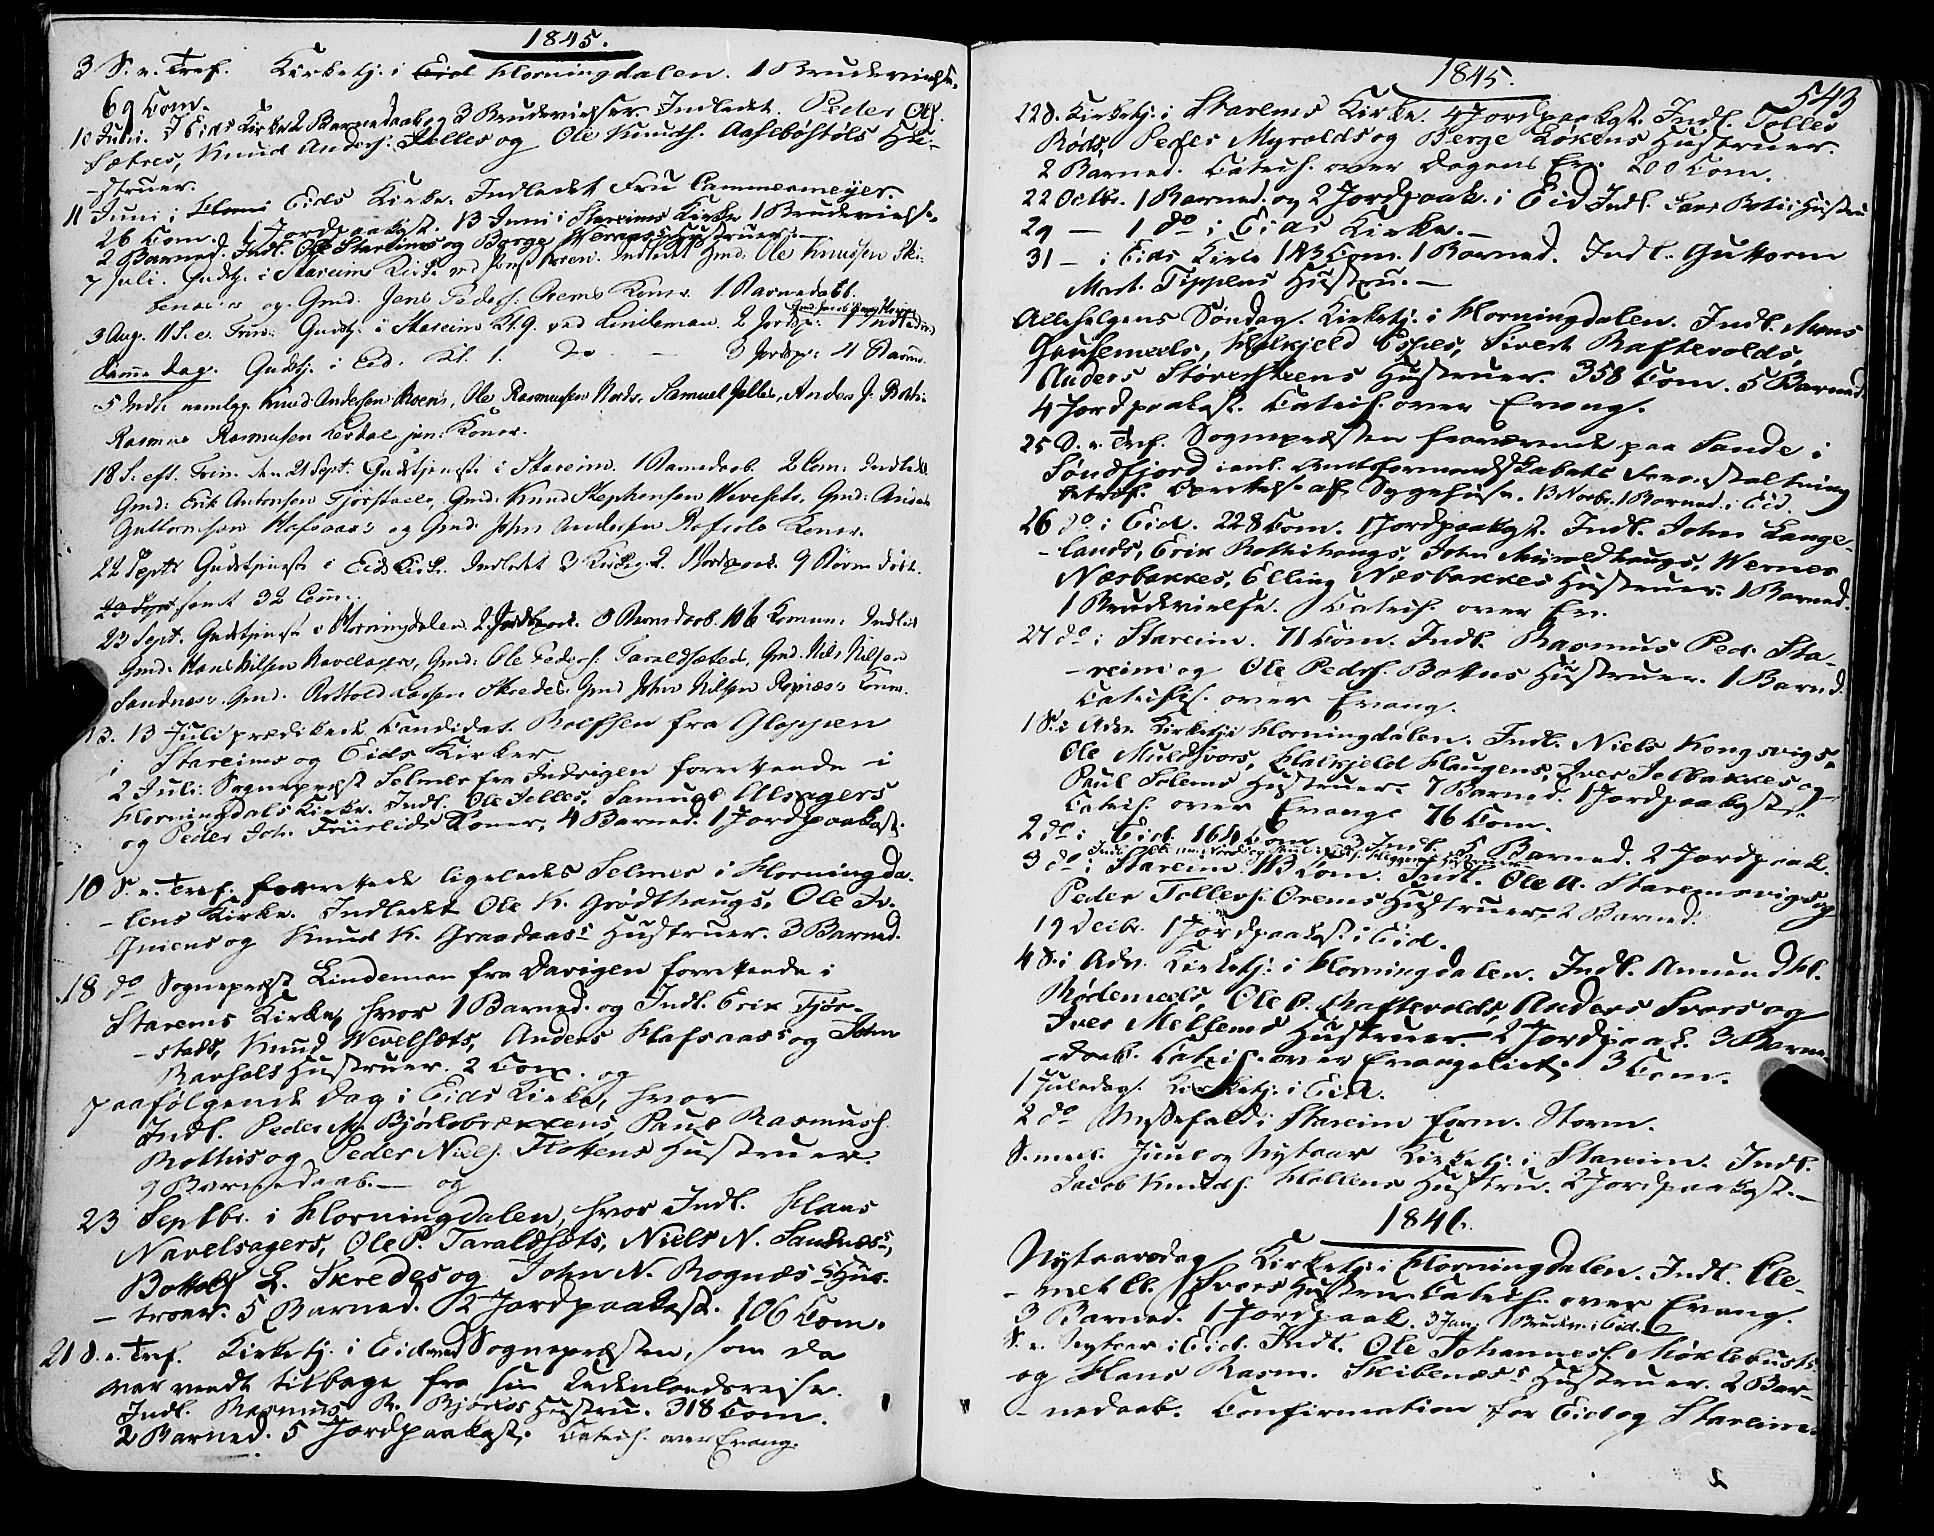 1845.
3 S. e. Tref. Kirketj. i Eid Horningdalen. 1 Brudevielse.
69 Com.
10 Juni. I Eids Kirke 2 Barnedaab og 3 Brudevielser. Indledet Peder Ols.
Sætres, Knud Anders. Jelles og Ole Knuds. Aaseböstöls Hu-
-struer.
11 Juni i Horni Eids Kirke. Indledet Fru Cammermeyer
26 Com. 1 Jordpaakast. 13 Juni i Stareims Kirke 1 Brudevielse
2 Barned. Indl. Ole Stareims og Børge Hustruer.
7 Juli. Gudtj. i Stareim Kirke ved Indledet Gmd: Ole Knudsen Ski-
benæs og Gmd: Jens Peders. Orems Koner. 1 Barnedaab.
3 Aug. 11 S. e. Trin: Gudtj. i Stareim Kl. 9. ved Lindeman. 2 Jordsp: Indledet
samme dag. Gudtj. i Eid. Kl. 1. Do — 3 Jordsp: 4 Barne
5 Indl: nemlig: Knud Andersen Moen, Ole Rasmussen Nords, Samuel Jelles, Anders J. Roti:
Rasmus Rasmusen Lerdal jun: Koner.
18 S. eft. Trin: den 21 Sept: Gudstjeneste i Stareim. 1 Barnedaab. 2 Com: Indledt
Gmd: Erik Antonsen Tjörstad, Gmd: Knud Stephensen Wevelsets, Gmd: Anders
Guttormsen Hafsaas: og Gmd: John Andersen Koner.
22 Septr Gudstjeneste i Eids Kirke. Indledet 3 1 Jordspaak. 9 Börn döbt.
23 Sept samt 32 Com:
23 Sept. Gudstjeneste i Horningdalen. 2 Jordspaak. 5 Barnedaab. 106 Comun: Indledt
Gmd: Hans Nilsen Navelsager, Gmd: Ole Peders. Taraldsetes, Gmd. Nils Nilsen
Sandnes: Gmd. Bottold Larsen Skredes: Gmd John Nilsen Rognæs: Koner.
13. 13 Juli prædikede Candidat Rolfsen fra Gloppen
i Stareims og Eids Kirker
2 Juli: Sognepræst Selmer fra Indvigen forrettede i
Horningdals Kirke. Indl. Ole Jelles, Samuel Alsagers
og Peder Joh. Koner. 4 Barned. 1 Jordpaakast.
10 S. e. Tref. forrettede ligeledes Selmer i Horningda-
-lens Kirke. Indledet Ole K. Grødthaugs, Ole Iv.
og Knud K. Hustruer. 3 Barned.
18 do Sognepræst Lindeman fra Davigen forrettede i
Starems Kirke, hvor 1 Barned. og Indl. Erik Tjör-
-stads, Knud Wevelsets, Anders Hafsaas: og John
Hustruer. 2 Com. og
paafølgende Dag i Eids Kirke, hvor
Indl. Peder M. Björlobrekkens, Paul Rasmus.
Rothis og Peder Niels. Flotens Hustruer.
9 Barnedaab. — og
23 Septbr. i Horningdalen, hvor Indl. Hans
Navelsagers, Ole P. Taraldsets, Niels N. Sandnæs:,
Bottolf L. Skredes og John N. Rognæs: Hus-
-truer. 5 Barned. 2 Jordpaakast. 106 Com.
21 S. e. Tref. Kirketj. i Eid ved Sognepræsten, som da
var vendt tilbage fra sin Udenlandsreise.
Indl. Rasmus R. Björlos Hustru. 318 Com.
2 Barned. 5 Jordpaakast. Catech. over Evang.
1845.
543
22 S. Kirketj. i Starems Kirke. 4 Jordpaakast. Indl. Tolles
Røds, Peder Myrolds og Berge Løkens Hustruer.
2 Barned. Catech. over Dagens Ev. 200 Com.
22 Octbr. 1 Barned. og 2 Jordpaak. i Eid Indl. Lars Rotis Hustru
29 — 1 do i Eids Kirke. —
31 — i Eids Kirke 183 Com. 1 Barned. Indl. Guttorm
Mart. Hustru. —
Allehelgens Søndag. Kirketj. i Horningdalen. Indl. Mons
Grusemels, Halkjeld Espes, Sivert Raftevolds,
Anders Støversteens Hustruer. 358 Com. 5 Barned.
4 Jordpaakast. Catech. over Evang.
25 S. e. Tref. Sognepræsten fraværende paa Sande i
Søndfjord ifølge Amtsformandskabets Foranstaltning
betræf. Oprettelse af Sygehuse. 13 Novbr. 1 Barned. i Eid.
26 do i Eid. 228 Com. 1 Jordpaakast. Indl. John Lange-
-lands, Erik Rotihaugs, John Muroldhaugs, Wernes
Næsbakkes, Elling Næsbakkes Hustruer. 1 Barned.
1 Brudevielse. Catech. over Ev.
27 do i Stareim. 71 Com. Indl. Rasmus Ped. Sta-
-reims og Ole Peders. Bottns Hustruer. 1 Barned.
Catechis. over Evang.
1 S. i Adv. Kirketj. i Horningdalen. Indl. Niels Kongsvigs,
Ole Muldsvors, Halkjeld Haugens, Iver Jelbakkes og
Paul Solems Hustruer. 7 Barned. 1 Jordpaakast.
Catech. over Evange. 76 Com.
2 do i Eid. 164 Com. 5 Barned. 2 Jordpaak.
3 do i Stareim. 113 Com. Indl. Ole A. Staremsvigs og
Peder Tollevs. Orems Hustruer. 2 Barned.
19 Decbr. 1 Jordpaakast. i Eid.
4 S. i Adv. Kirketj. i Horningdalen. Indl. Amund H.
Rødemels, Ole O. Raftevolds, Anders Svors og
Iver Mellems Hustruer. 2 Jordpaak. 3 Barne-
-daab. Catech. over Evangeliet. 3 Com.
1 Juledag. Kirketj. i Eid.
2 do Messefald i Stareim form. Storm.
S. mell. Juul og Nytaar Kirketj. i Stareim. Indl.
Jacob Knuds. Hellens Hustru. 2 Jordpaakast. —
1846.
Nytaarsdag Kirketj. i Horningdalen. Indl. Cle-
-met Svors Hustru. Catech. over Evang.
3 Barned. 1 Jordpaak. 3 Jan: 1 Brudev. i Eid.
S. e. Nytaar i Eid. Indl. Ole Johanness. Möklebusts
og Hans Rasm. Skibenæs: Hustruer. 2 Bar-
-nedaab. Confirmation for Eid og Stareim.